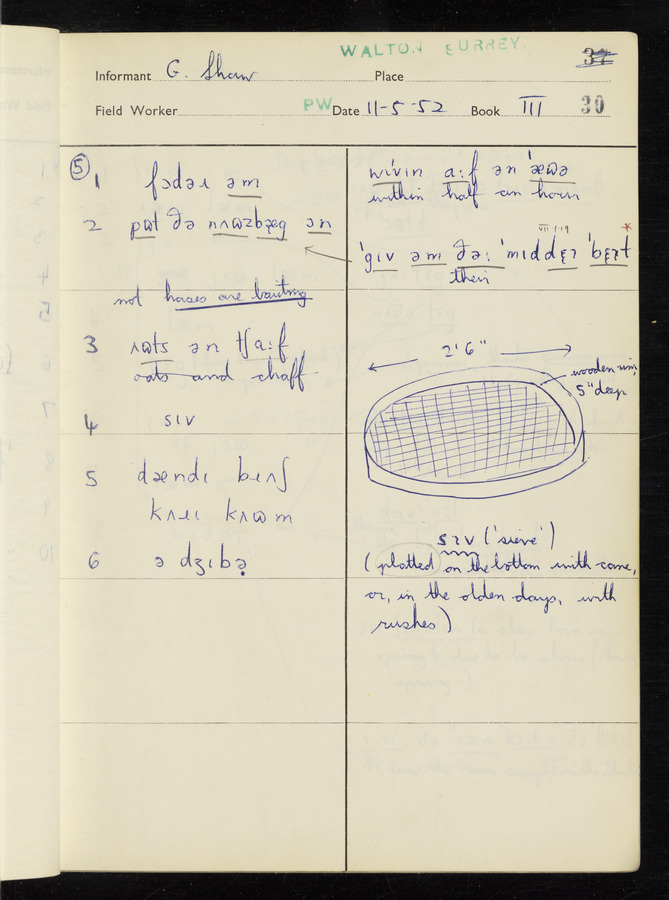 WALTON SURREY.
37
Informant G. Shaw Place
Field Worker PW Date 11-5-52 Book III 30
5
1 fɔdəɹ əm
2 pʊt ðə nʌʊzbæg ən
not horses are baiting
3 ʌʊts ən tʃa:f
oats and chaff
4 sɪv
5 dændɪ bɹʌʃ
kʌɹɪ kʌʊm
6 ə dʒɪbə
wivin a:f ən 'æʊə
within half an hour
VII.1.19 *
'gɪv əm ðə: 'mɪddɛɪ 'bɛɪt
their
2'6"
wooden rim,
5" deep
sɪv ('sieve')
(plotted on the bottom with cane,
or, in the olden days, with
rushes)